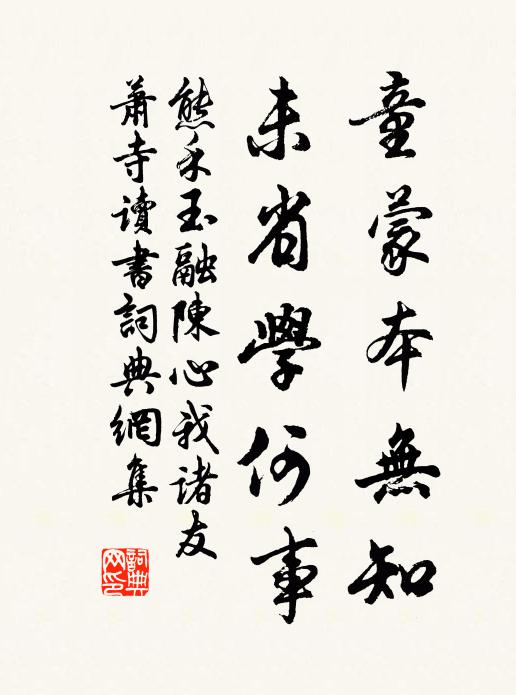 童蒙本無知
未省學何事
熊禾玉融陳心我諸友
蕭寺讀書詞典網集
詞典
网印